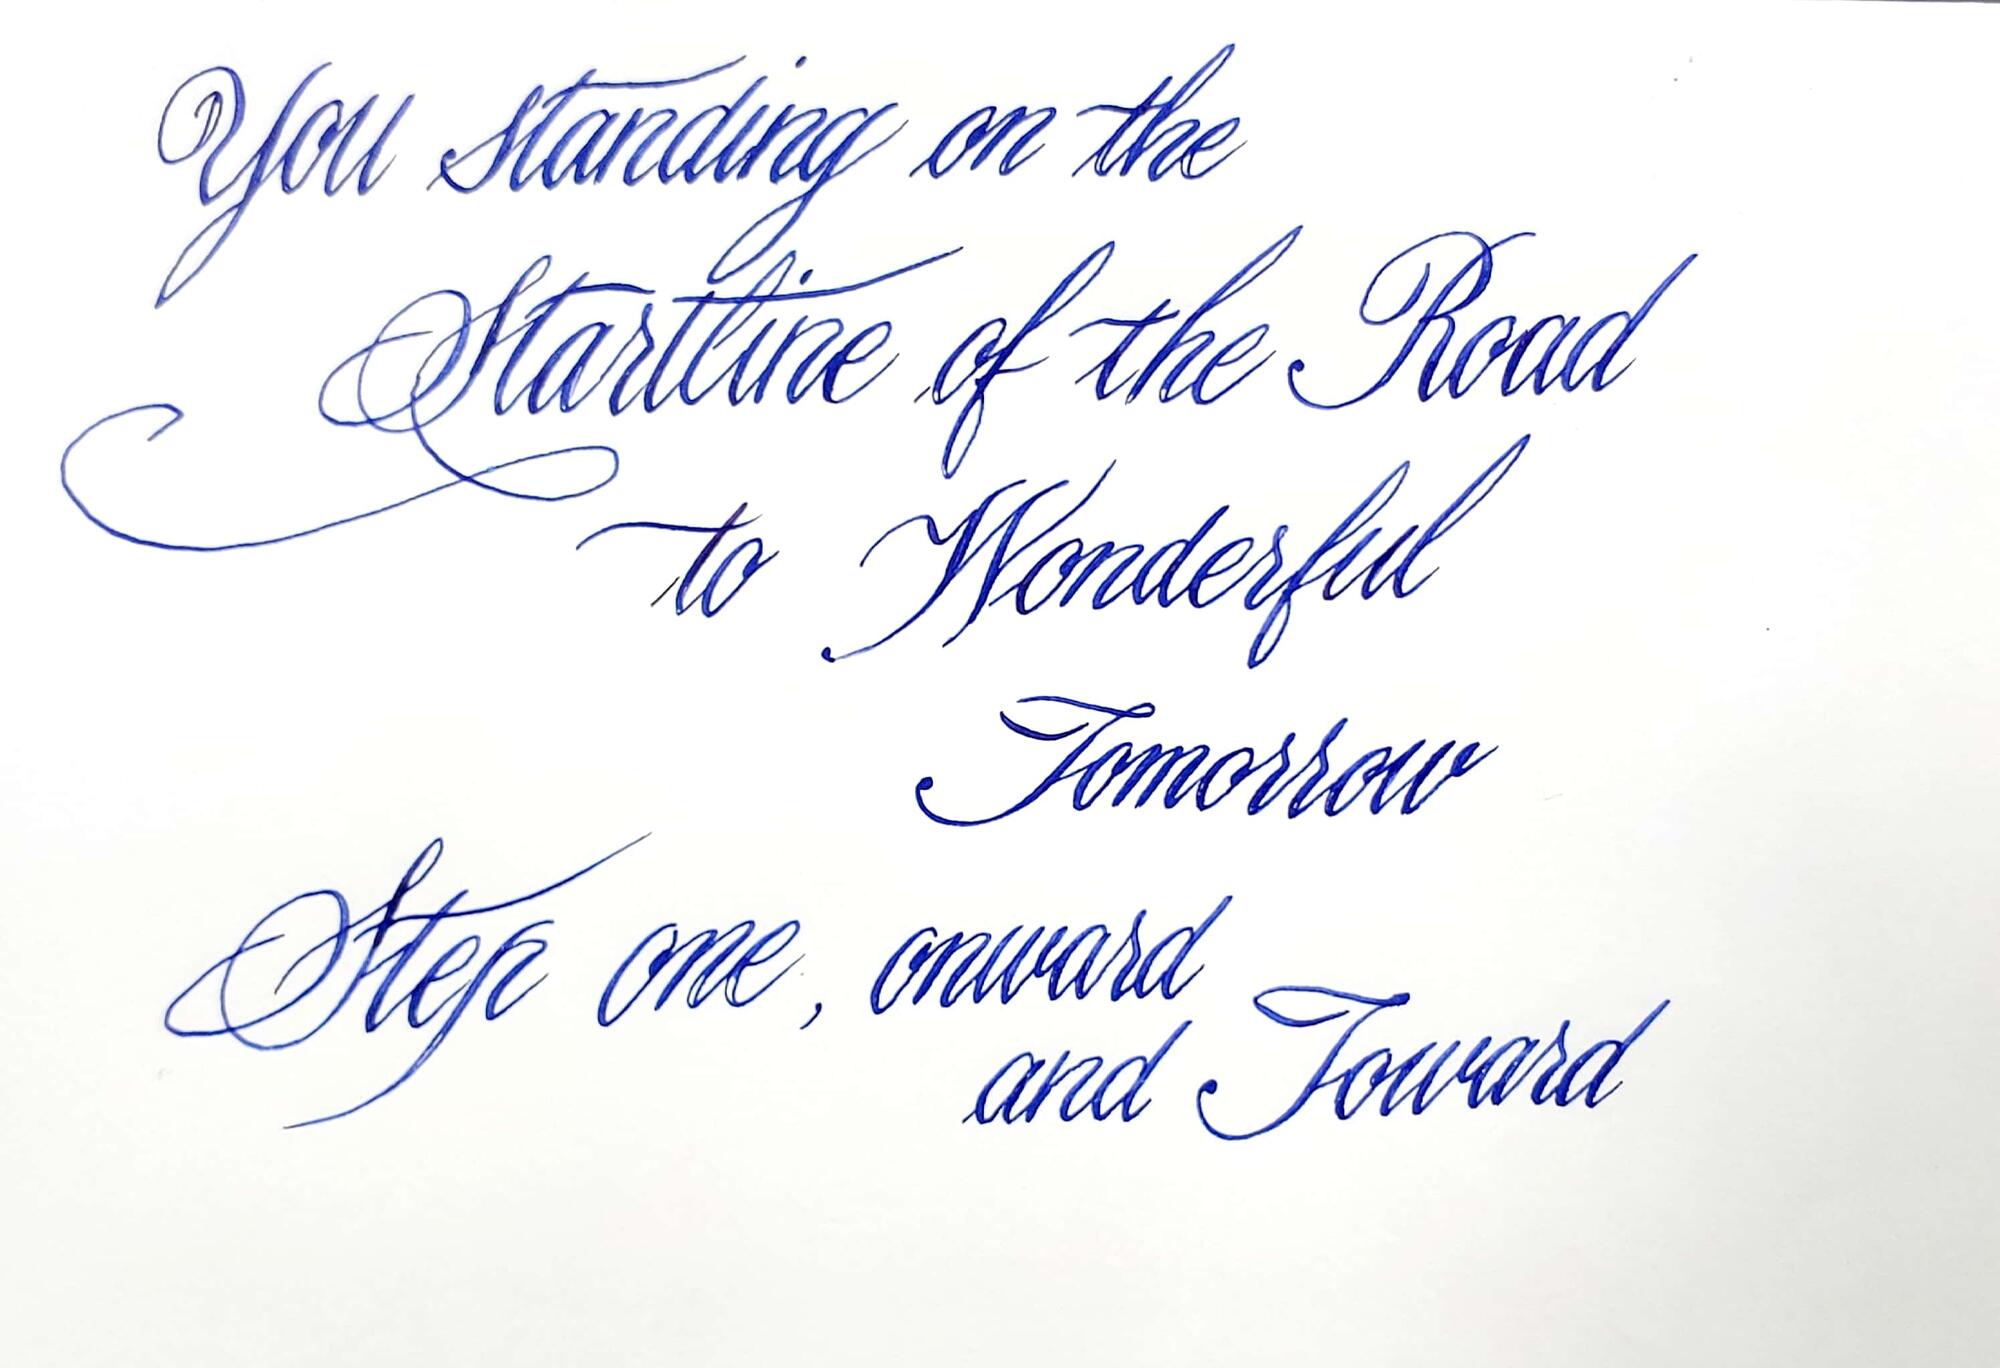 You standing on the
Startline of the Road
to Wonderful
Tomorrow
Step one, onward
and Toward